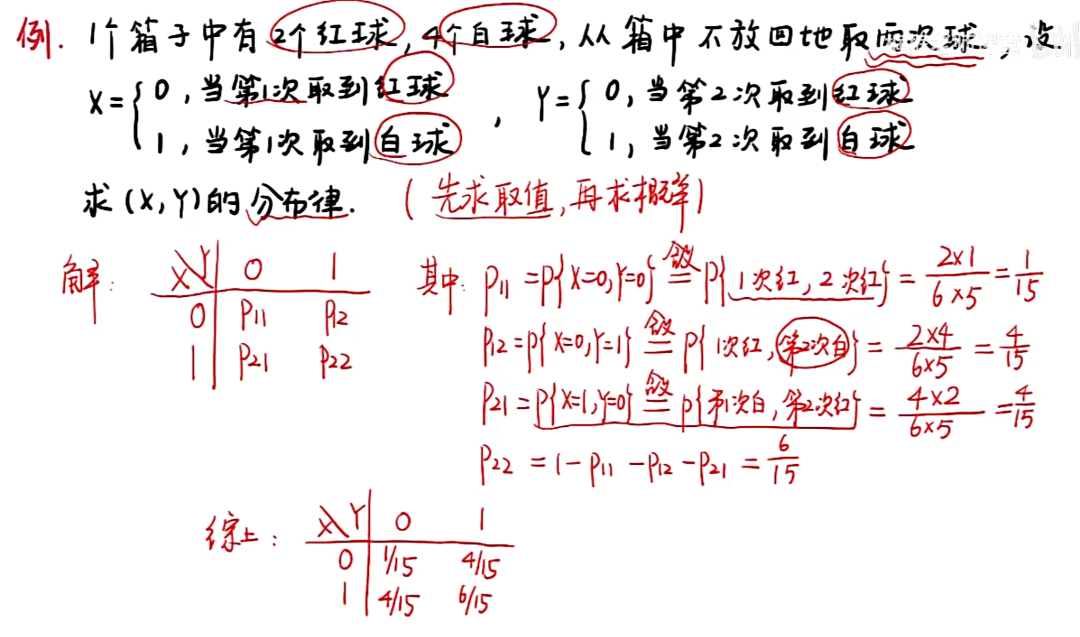 例. 1个箱子中有2个红球, 4个白球, 从箱中不放回地取两次球, 设
X={0, 当第1次取到红球
1, 当第1次取到白球
, Y={0, 当第2次取到红球
1, 当第2次取到白球
求(X,Y)的分布律. (先求取值, 再求概率)
解: X\Y 0 1
0 P11 P12
1 P21 P22
其中: P11=P{X=0,Y=0} 含义= P{1次红, 2次红} = 2×1/6×5 = 1/15
P12=P{X=0,Y=1} 含义= P{1次红, 第2次白} = 2×4/6×5 = 4/15
P21=P{X=1,Y=0} 含义= P{第1次白, 第2次红} = 4×2/6×5 = 4/15
P22 = 1-P11-P12-P21 = 6/15
综上: X\Y 0 1
0 1/15 4/15
1 4/15 6/15